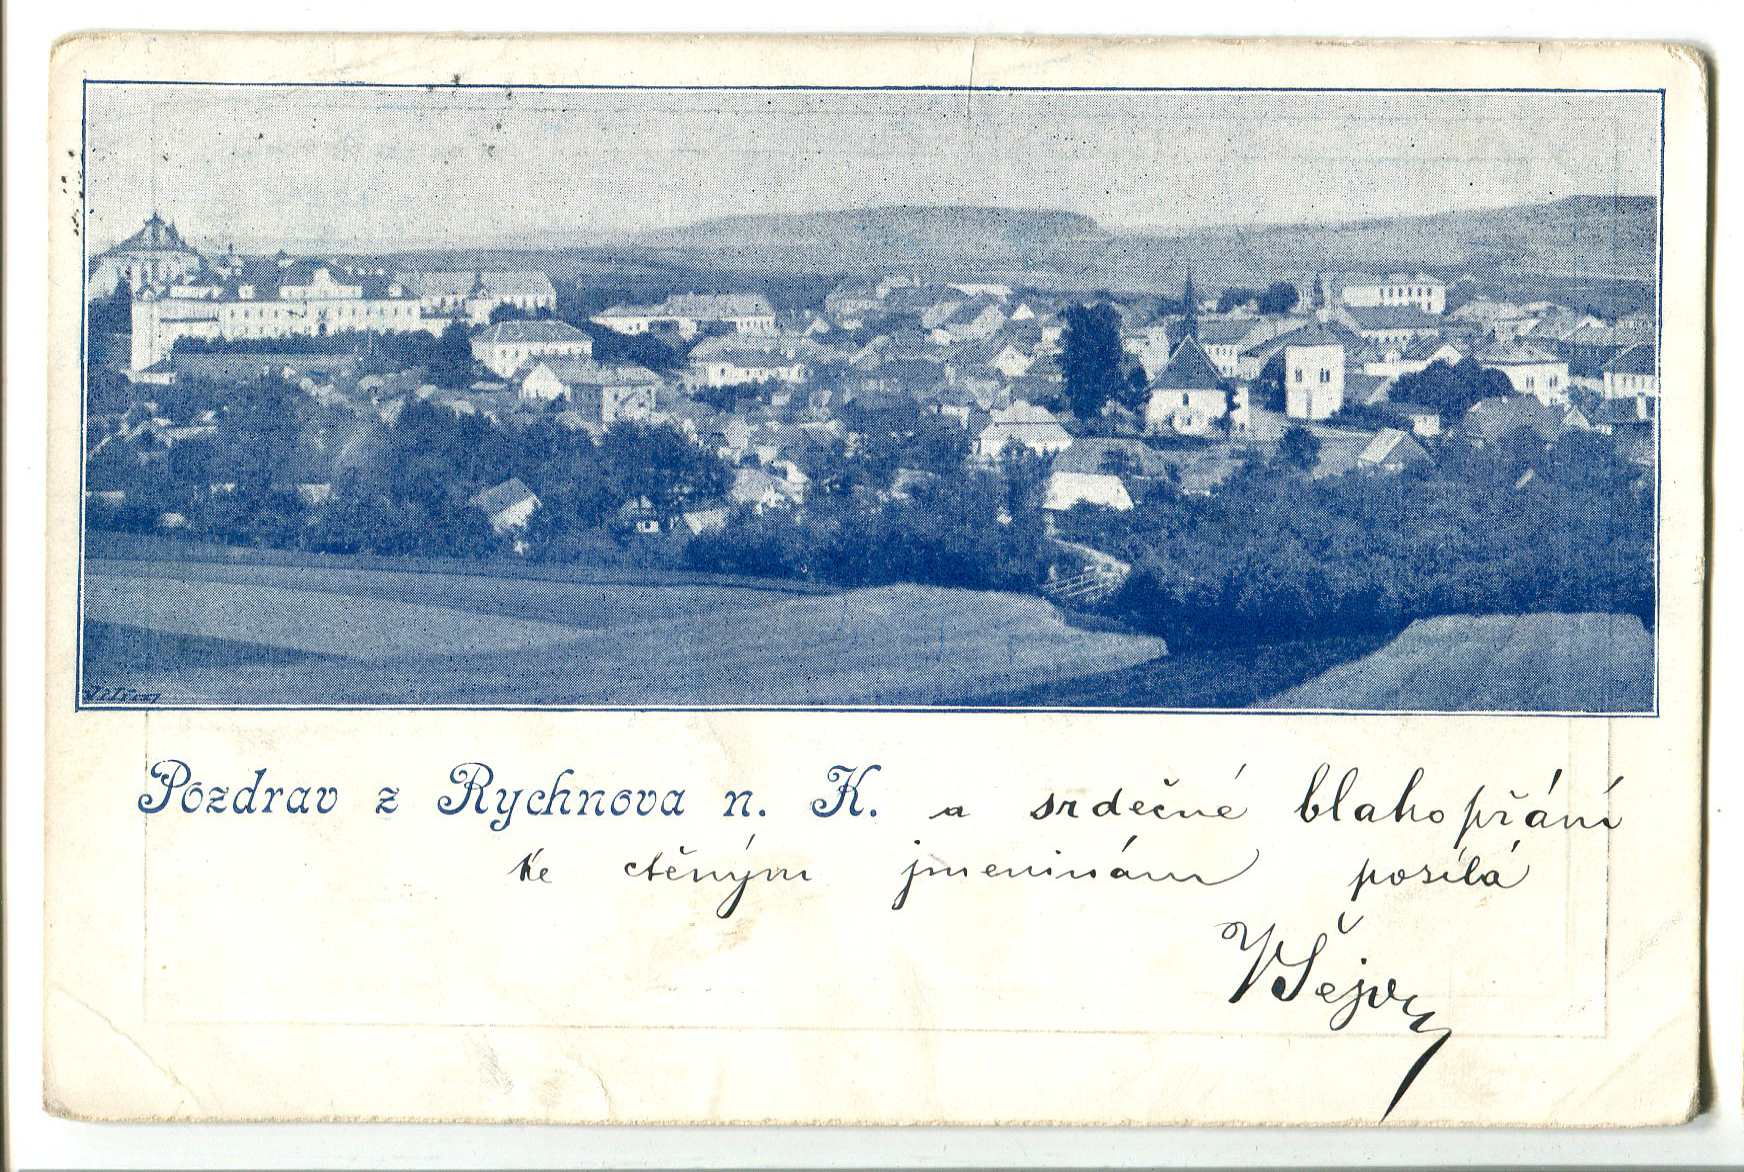 Pozdrav z Rychnova n. K. a srdečné blahopřání
ke ctěným jmeninám posílá